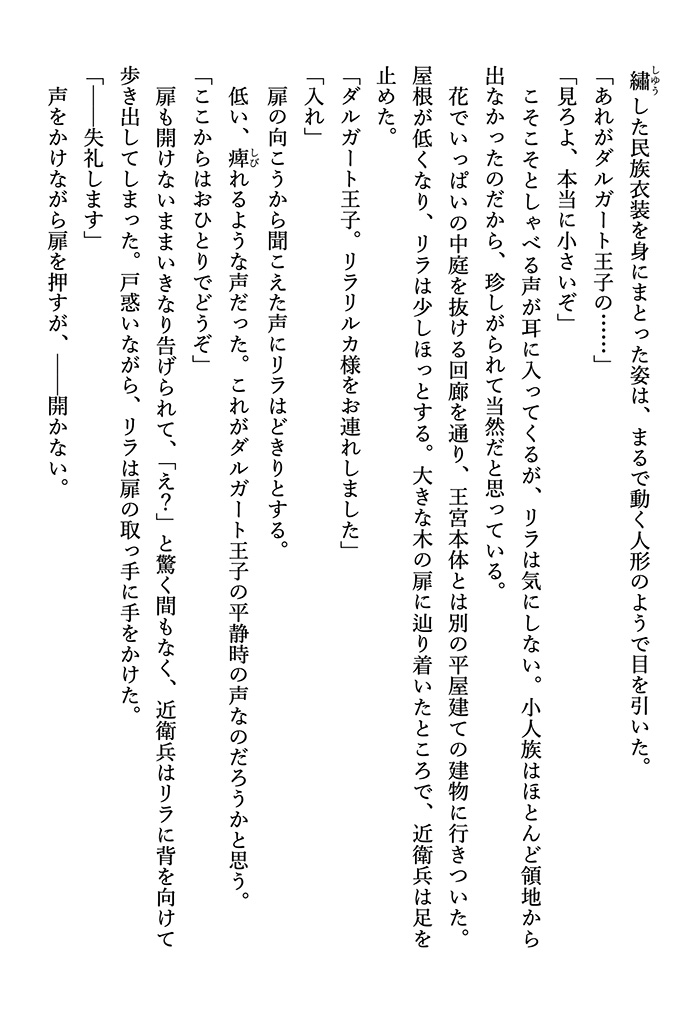 繡した民族衣装を身にまとった姿は、まるで動く人形のようで目を引いた。
「あれがダルガート王子の……」
「見ろよ、本当に小さいぞ」
こそこそとしゃべる声が耳に入ってくるが、リラは気にしない。小人族はほとんど領地から
出なかったのだから、珍しがられて当然だと思っている。
花でいっぱいの中庭を抜ける回廊を通り、王宮本体とは別の平屋建ての建物に行きついた。
屋根が低くなり、リラは少しほっとする。大きな木の扉に辿り着いたところで、近衛兵は足を
止めた。
「ダルガート王子。リラリルカ様をお連れしました」
「入れ」
扉の向こうから聞こえた声にリラはどきりとする。
低い、痺れるような声だった。これがダルガート王子の平静時の声なのだろうかと思う。
「ここからはおひとりでどうぞ」
扉も開けないままいきなり告げられて、「え？」と驚く間もなく、近衛兵はリラに背を向けて
歩き出してしまった。戸惑いながら、リラは扉の取っ手に手をかけた。
「――失礼します」
声をかけながら扉を押すが、――開かない。